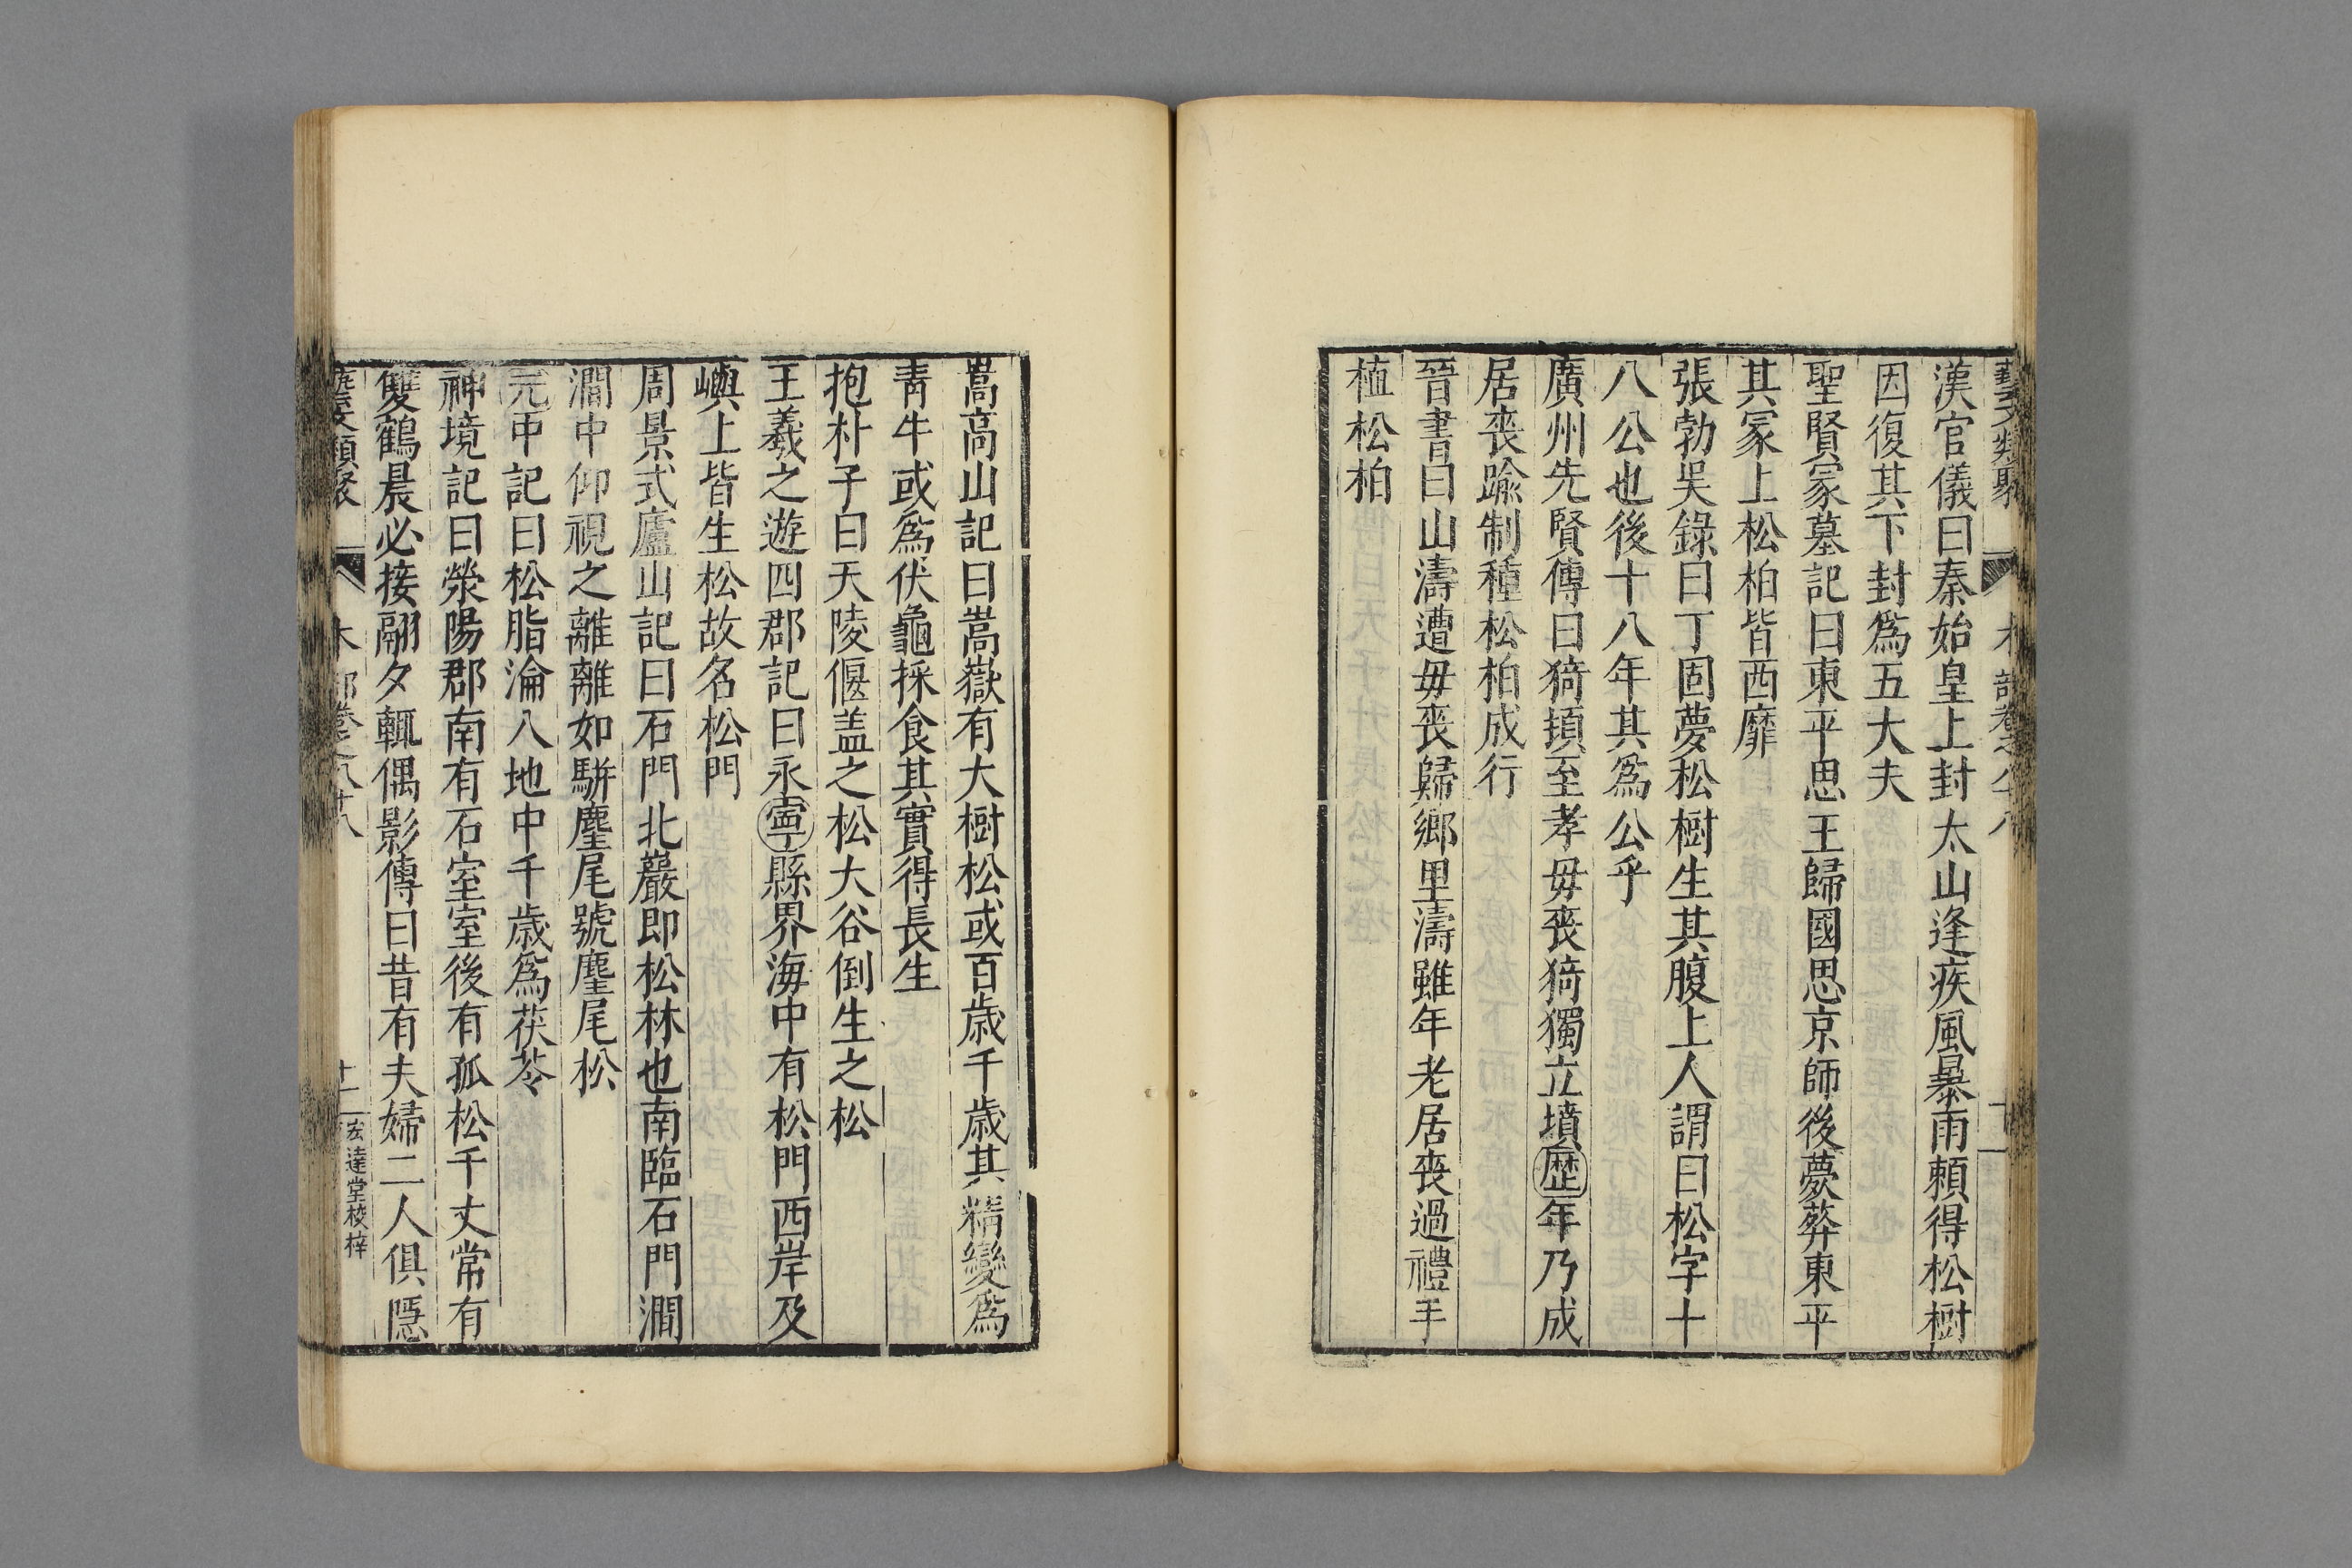 藝文類聚 木部卷之八十八 十一
漢官儀曰秦始皇上封太山逢疾風暴雨賴得松樹
因復其下封爲五大夫
聖賢冢墓記曰東平思王歸國思京師後薨葬東平
其冢上松柏皆西靡
張勃吳錄曰丁固夢松樹生其腹上人謂曰松字十
八公也後十八年其爲公乎
廣州先賢傳曰猗頓至孝毋喪猗獨立墳歷年乃成
居喪踰制種松柏成行
晉書曰山濤遭毋喪歸鄉里濤雖年老居喪過禮手
植松柏
嵩高山記曰嵩嶽有大樹松或百歲千歲其精變爲
青牛或爲伏龜採食其實得長生
抱朴子曰天陵偃盖之松大谷倒生之松
王羲之遊四郡記曰永寧縣界海中有松門西岸及
嶼上皆生松故名松門
周景式廬山記曰石門北巖即松林也南臨石門澗
澗中仰視之離離如駢麈尾號麈尾松
元中記曰松脂淪入地中千歲爲茯苓
神境記曰滎陽郡南有石室室後有孤松千丈常有
雙鶴晨必接翮夕輒偶影傳曰昔有夫婦二人俱隱
藝文類聚 木部卷之八十八 十一 宏達堂校梓